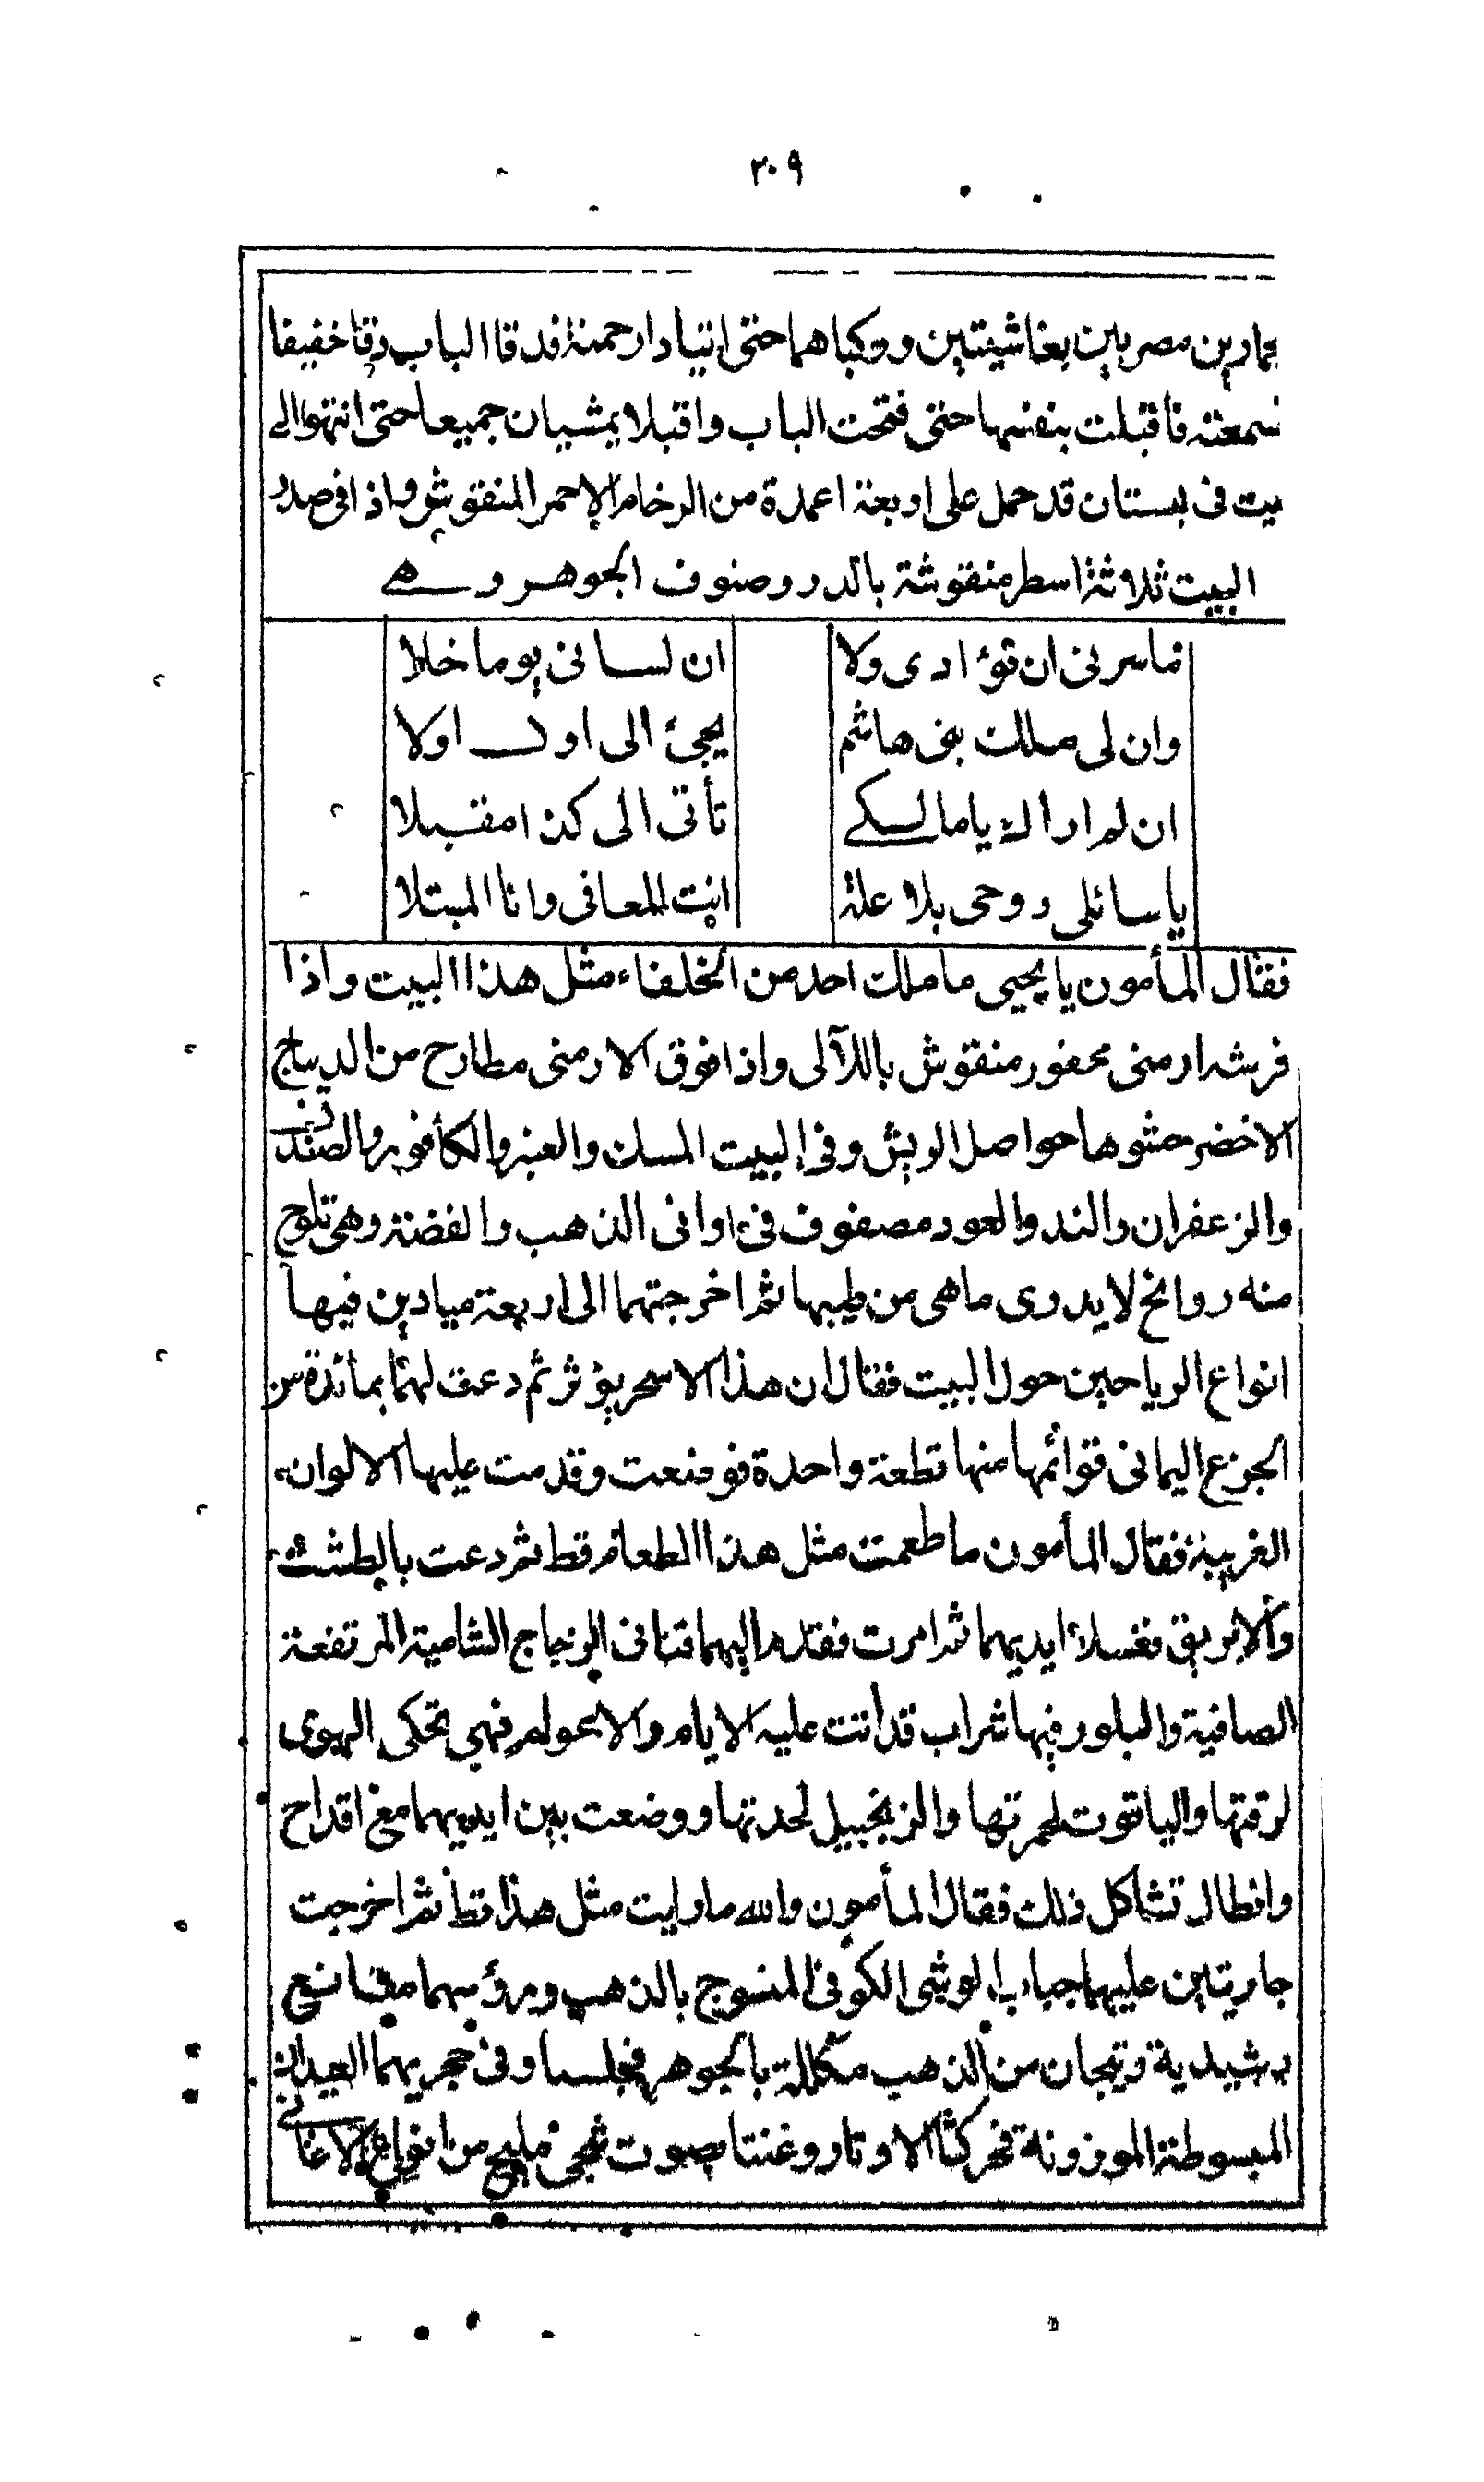 ٣٠٩
حمارين مصريين بغاشيتين وركباهما حتى اتيا دار حمنة فدقا الباب دقا خفيفا
سمعته فاقبلت بنفسها حتى فتحت الباب واقبلا يمشيان جميعا حتى انتهوا الى
بيت فى بستان قد حمل على اربعة اعمدة من الرخام الاحمر المنقوش واذا فى صدر
البيت ثلاثة اسطر منقوشة بالدر وصنوف الجوهر وهي
ما سرنى ان فؤادى ولا ان لسانى يوما خلا
وان لى ملك بنى هاشم يجئ الى اول اولا
ان لم ارا لك يا مالكي تأتى الى كذا مقبلا
يا سائلى روحى بلا علة انت المعافى وانا المبتلا
فقال المأمون يا يحيى ما ملك احد من الخلفاء مثل هذا البيت واذا
فرشه ارمنى محفور منقوش باللآلى واذا فوق الارمنى مطارح من الديباج
الاخضر حشوها حواصل الريش وفى البيت المسك والعنبر والكافور والصندل
والزعفران والند والعود مصفوف فى اوانى الذهب والفضة وهى تلوح
منه روائح لا يدرى ما هى من طيبها ثم اخرجتهما الى اربعة ميادين فيها
انواع الرياحين حول البيت فقال ان هذا الا سحر يؤثر ثم دعت لهما بمائدة من
الجزع اليمانى قوائمها منها قطعة واحدة فوضعت وقدمت عليها الالوان
الغريبة فقال المأمون ما طعمت مثل هذا الطعام قط ثم دعت بالطشت
والابريق فغسلا ايديهما ثم امرت فقدم اليهما قنانى الزجاج الشامية المرتفعة
الصافية والبلور فيها شراب قد أتت عليه الايام والاعوام فهي تحكى الهوى
لرقتها والياقوت لحمرتها والزنجبيل لحدتها ووضعت بين ايديهما مع اقداح
وارطال تشاكل ذلك فقال المأمون والله ما رايت مثل هذا قط ثم اخرجت
جاريتين عليهما جباب الوشى الكوفى المنسوج بالذهب ورؤسهما مقانع
رشيدية وتيجان من الذهب مكللة بالجوهر فجلسا وفى حجريهما العيدان
المبسوطة الموزونة تحركتا الاوتار وغنتا بصوت شجى مليح من انواع الاغانى